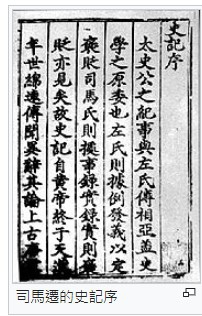 史記序
太史公之紀事與左氏傳相亞蓋史
學之原委也左氏則據倒發義以定
褒貶司馬氏則摭事錄實錄實則褒
貶亦見矣故史記自黃帝終于天漢
年世綿遠傳聞異辭其論上古
司馬遷的史記序